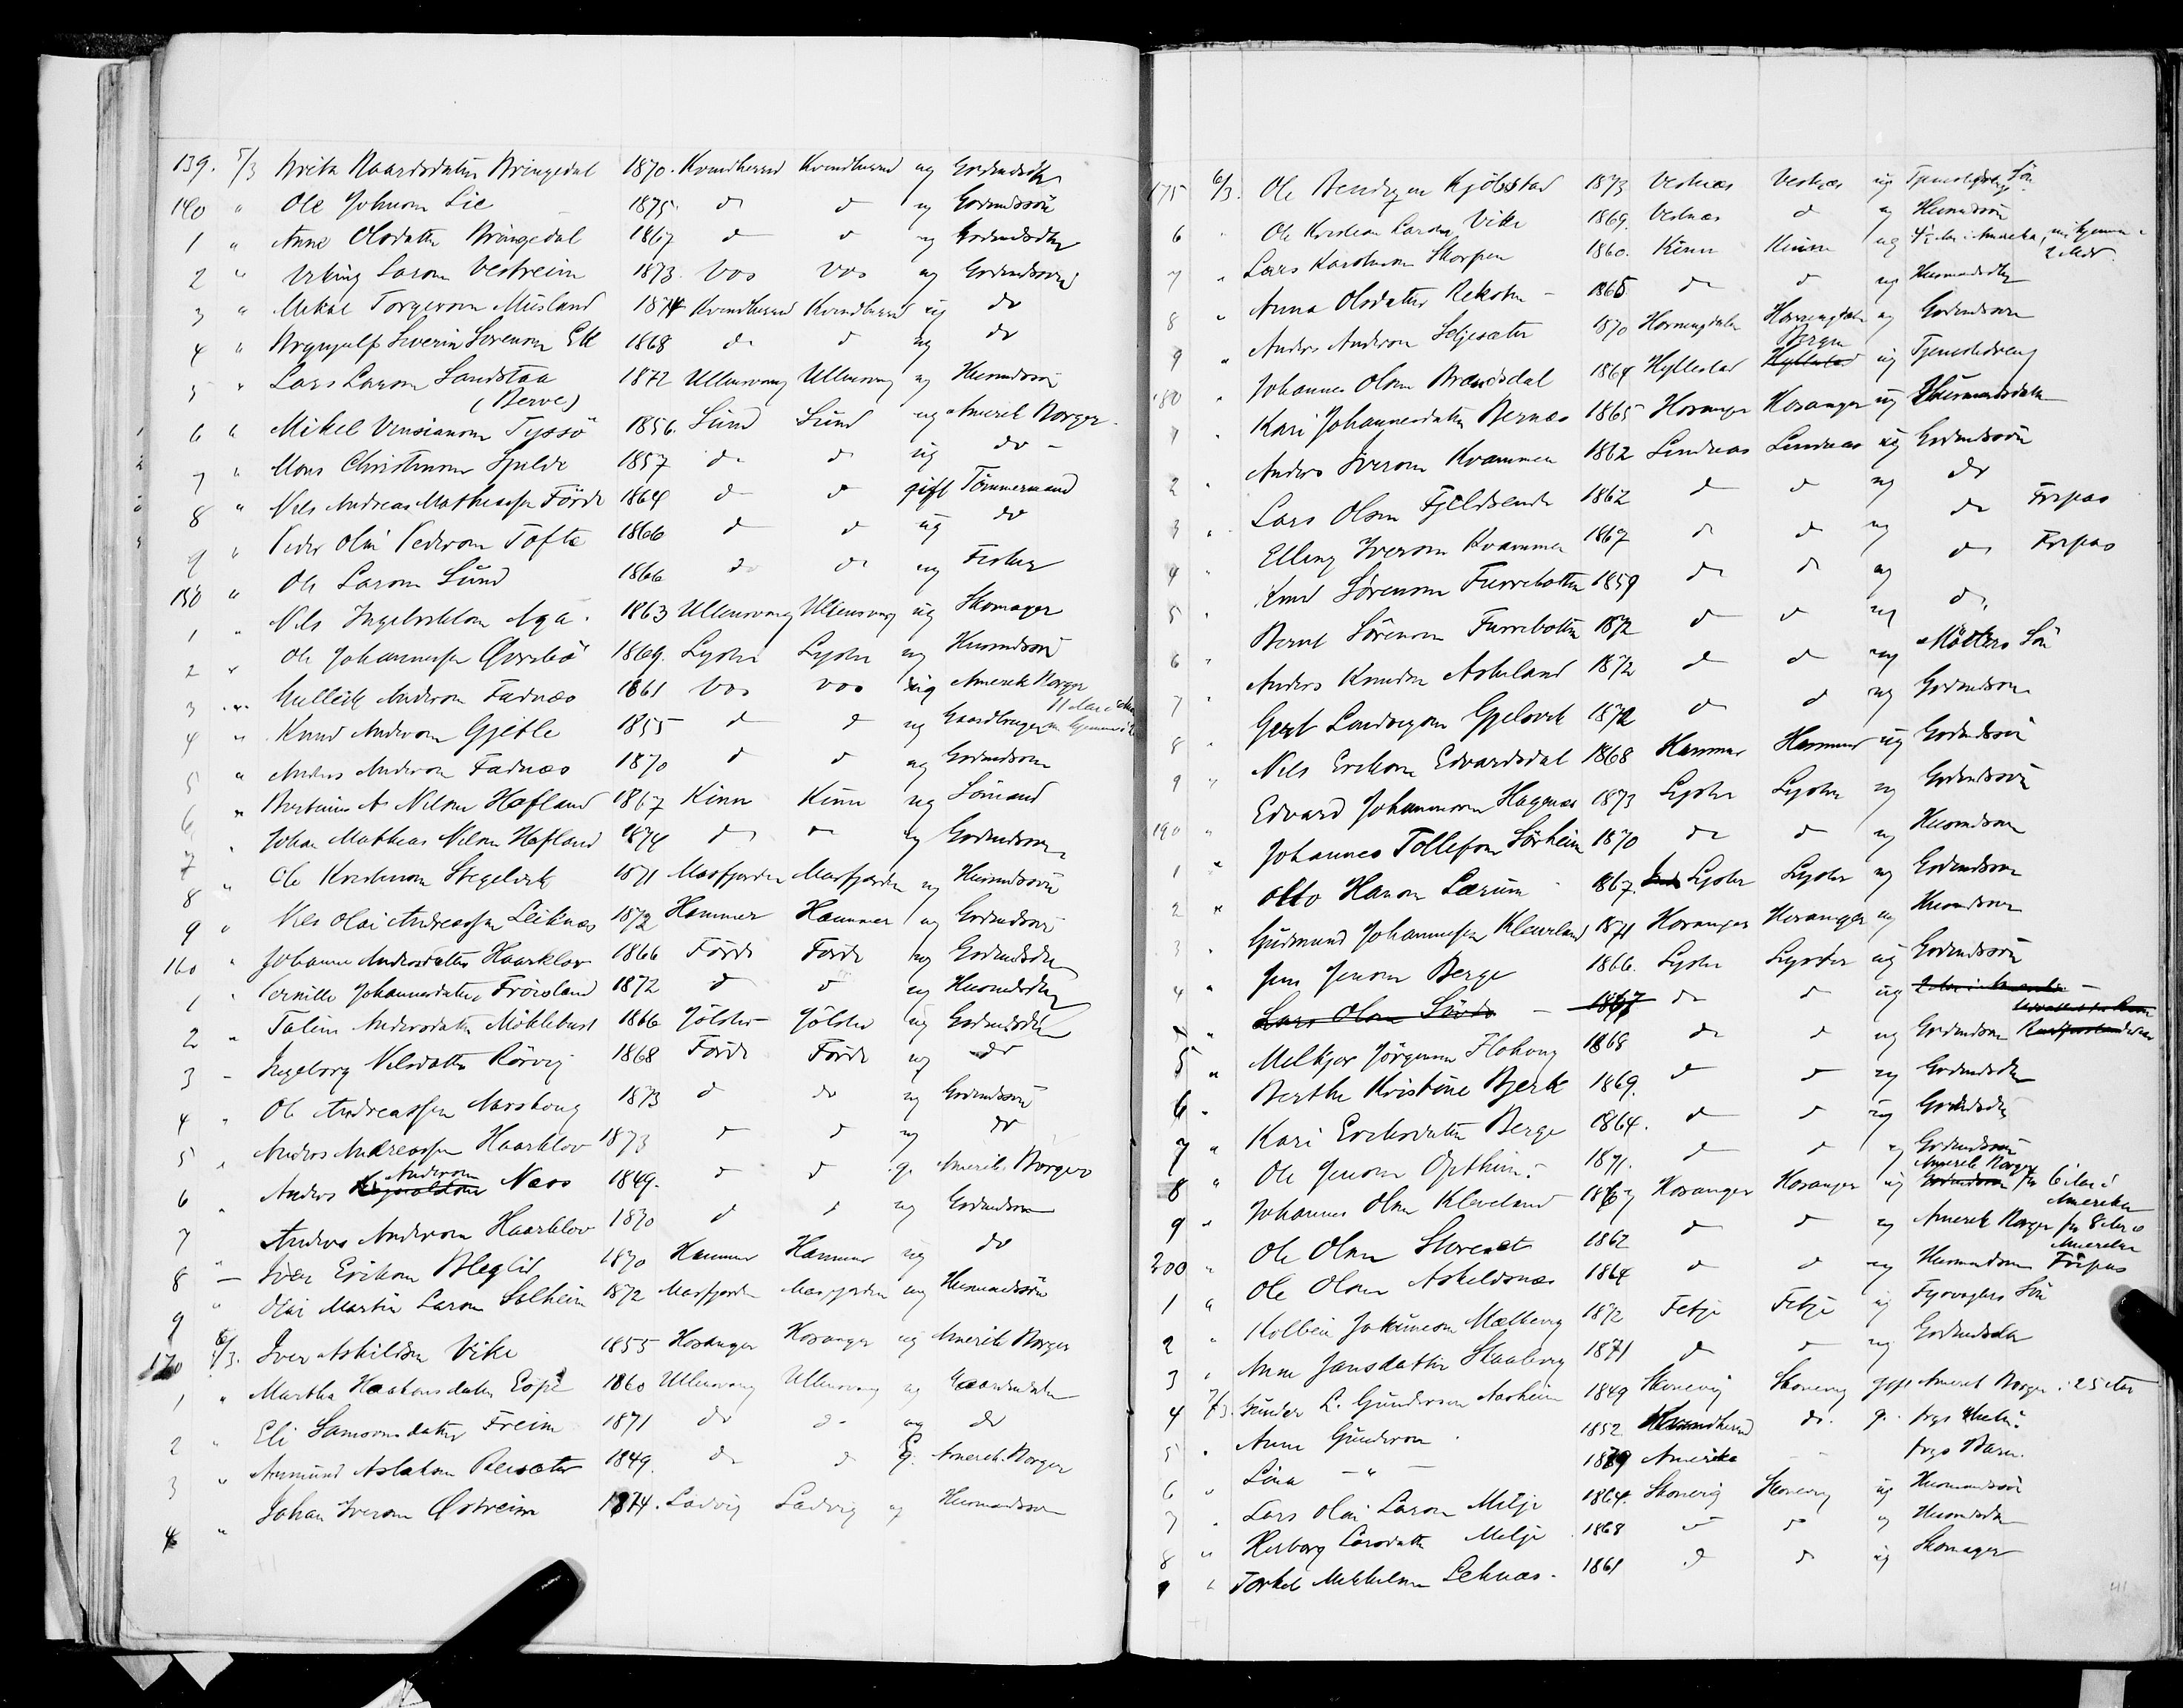 139. 5/3 Brita Baardsdatter Bringedal 1870. Kvindherred Kvindherred ug Grdmdsdtr
140 " Ole Johnsen Lie 1875. do do ug Grdmdssön
1 " Anna Olsdatter Bringedal 1867 do do ug Grdmdsdtr
2 " Viking Larsen Vestreim 1873. Vos Vos ug Grdmdssön
3 " Mikal Torgersen Musland 1874 Kvindherred Kvindherred ug do
4 " Brynjulf Severin Sorensen Eik 1868 do do ug do
5 " Lars Larsen Sandstaa 1872 Ullensvang Ullensvang ug Husmdssön
(Berve)
6 " Mikel Vinsiansen Tyssö 1856. Sund Sund ug Amerik Borger.
7 " Mons Christensen Spilde 1857 do do ug do -
8 " Nils Andreas Mathiassen Förde 1864 do do gift Tömmermand
9 " Peder Olai Pedersen Tofte 1866 do do ug do
150 " Ole Larsen Sund 1866 do do ug Fisker
1 " Nils Ingebriktsen Aga. 1863 Ullensvang Ullensvang ug Skomager
2 " Ole Johannessen Øvrebö 1869. Lyster Lyster ug Husmdssön
3 " Gulleik Andersen Fadnæs 1861 Vos Vos ug Amerik Borger
4 " Knud Andersen Gjetle 1855 do do ug Gaardbruger
5 " Anders Andersen Fadnæs 1870 do do ug Grdmdssön
6 " Bertinius A. Nilsen Hafland 1867 Kinn Kinn ug Sömand
7 " Johan Mathias Nilsen Hafland 1874 do do ug Grdmdssön
8 " Ole Kristensen Stegelvik 1871 Masfjorden Masfjorden ug Husmdssön
9 " Nils Olai Andreassen Leiknæs 1872 Hammer Hammer ug Grdmdssön
160 " Johanne Andersdatter Haarklov 1866 Förde Förde ug Grdmdsdtr
1 " Pernille Johannesdatter Fröisland 1872 do do ug Husmdsdtr
2 " Taline Andersdatter Möklebust 1866 Jölster Jölster ug Grdmdsdtr
3 - Ingeborg Nilsdatter Rörvig 1868 Förde Förde ug do
4 " Ole Andreassen Narshoug 1873 do do ug Grdmdssön
5 " Anders Andreassen Haarklov 1873 do do ug do
6 " Anders Andersen Næss 1849. do do g. Amerik. Borger
7 " Anders Andersen Haarklov 1870 do do ug Grdmdssön
8 - Iver Eriksen Bleglid 1870 Hammer Hammer ug do
9 " Olai Martin Larsen Solheim 1872 Masfjorden Masfjorden ug Husmandssön
170 6/3. Iver Askildsen Vike 1855 Hosanger Hosanger ug Amerik Borger
1 " Martha Haakonsdatter Espe 1860 Ullensvang Ullensvang ug Gaardmdsdtr
2 " Eli Samsonsdatter Freim 1871 do do ug do
3 " Aamund Aslaksen Reisæter 1849. do do g. Amerik. Borger
4 " Johan Iversen Østreim 1874. Ladvig Ladvig ug Husmandssön
175 6/3. Ole Bendixen Kjölstad 1873 Vestnæs Vestnæs ug Tjenestedreng Sön
6 " Ole Kristian Larsen Vike 1869. Vestnæs do ug Husmdssön
7 " Lars Karolusen Skorpen 1860. Kinn Kinn ug 4½ Aar i Amerika, nu hjemme i
2 Mdr
8 " Anna Olsdatter Reksten - 1865 do do ug Husmdsdtr
9 " Anders Andersen Seljesæter 1870 Hornengdalen Hornengdalen ug Grdmdssön
Bergen
180 " Johannes Olsen Brandsdal 1864 Hyllestad Hyllestad ug Tjenestedreng
1 " Kari Johannesdatter Bernæs 1865 Hosanger Hosanger ug Husmandsdatter
2 " Anders Iversen Kvammen 1862 Lindeaas Lindeaas ug Grdmdssön
3 " Lars Olsen Fjeldsende 1862 do do ug do
4 " Elling Iversen Kvamme 1867 do do ug do Fripas
5 " Knud Sörensen Furrebotten 1859 do do ug do Fripas
6 " Bernt Sörensen Furrebotten 1872 do do ug do
7 " Anders Knudsen Askeland 1872 do do ug Möllers Sön
8 " Gert Ludvigsen Gjelsvik 1872 do do ug Grdmdssön
9 " Nils Eriksen Edvardsdal 1868 Hammer Hammer ug Grdmdssön
190 " Edvard Johannesen Hagenæs 1873 Lyster Lyster ug Grdmdssön
1 " Johannes Tollefsen Sörheim 1870 do do ug Husmdssön
2 " Otto Hansen Lærum 1867. Lyster Lyster ug Grdmdssön
3 " Gudmund Johannessen Kleveland 1871 Hosanger Hosanger ug Husmdssön
4 " Jens Jensen Berge 1866. Lyster Lyster ug Grdmdssön
" Lars Olsen - 1867 do do ug
5 " Melkjor Jörgensen Flohoug 1868 do do ug Grdmdssön
6 " Berthe Kristine Bjerk 1869. do do ug Grdmdsdtr
7 " Kari Eriksdatter Berge 1864. do do ug Grdmdsdtr
8 " Ole Jensen Opthun. 1871. do do ug Grdmdssön
Amerik Borger
9 " Johannes Olsen Kleveland 1867 Hosanger Hosanger ug Grdmdssön fra 6 Aar i
Amerika
200 " Ole Olsen Storeset 1862 do do ug Amerik Borger fra 8 Aar i
Amerika
1 " Ole Olsen Askeldsnæs 1864 do do ug Husmandssön Fripas
2 " Kolbein Jokumsen Mælberg 1872 Fetje Fetje ug Fyrvogters Sön
3 " Anne Jansdatter Skaaberg 1871 do do ug Grdmdsdtr
4 7/3. Gunder L. Gundersen Aasheim 1849 Skonevig Skonevig gift Amerik Borger i 25 Aar
5 " Anne Gundersen 1852 Kvindherred do. g. frgs Hustru.
6 " Lina - " - 1889 Amerika - frgs Barn.
7 " Lars Olai Larsen Milje 1864. Skonevig Skonevig ug Husmandssön
8 " Herborg Larsdatter Milje 1868 do do ug Husmdsdtr
9 " Torkel Mikkelsen Leknæs. 1861 do do ug Skomager
41